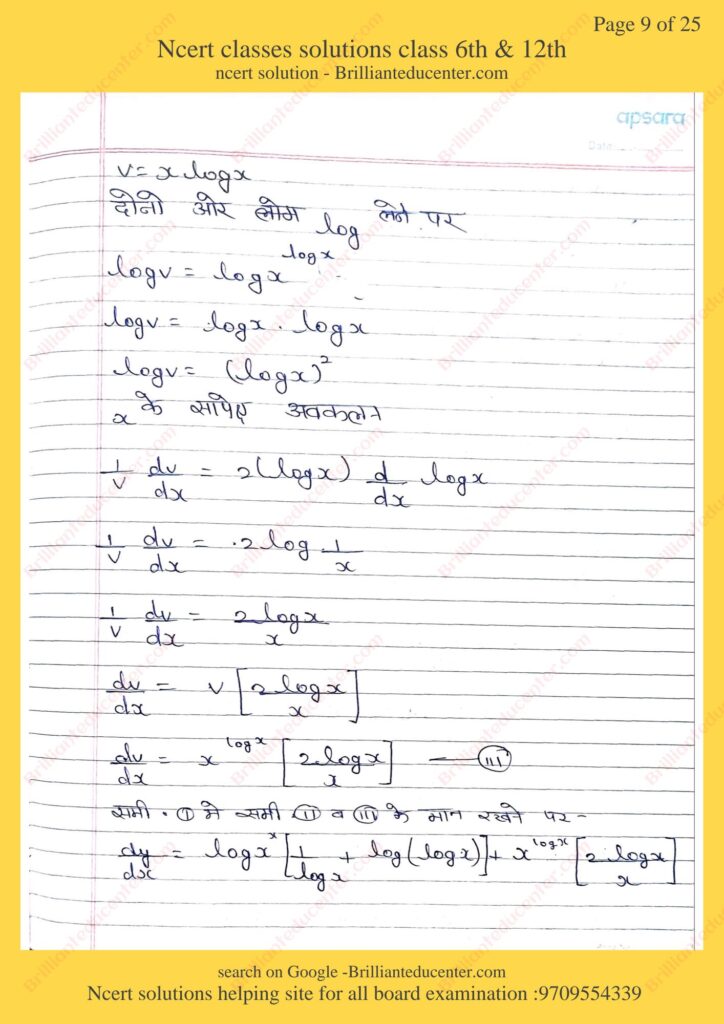 Page 9 of 25
Ncert classes solutions class 6th & 12th
ncert solution - Brillianteducenter.com
apsara
Date
v = x logx
दोनो ओर लोग log लेने पर
logv = logx^logx
logv = logx · logx
logv = (logx)²
x के सापेक्ष अवकलन
1/v dv/dx = 2(logx) d/dx logx
1/v dv/dx = ·2log 1/x
1/v dv/dx = 2logx/x
dv/dx = v [2logx/x]
dv/dx = x^logx [2logx/x] — (III)
समी · (I) मे समी (II) व (III) के मान रखने पर -
dy/dx = logx^x [1/logx + log(logx)] + x^logx [2logx/x]
search on Google -Brillianteducenter.com
Ncert solutions helping site for all board examination :9709554339